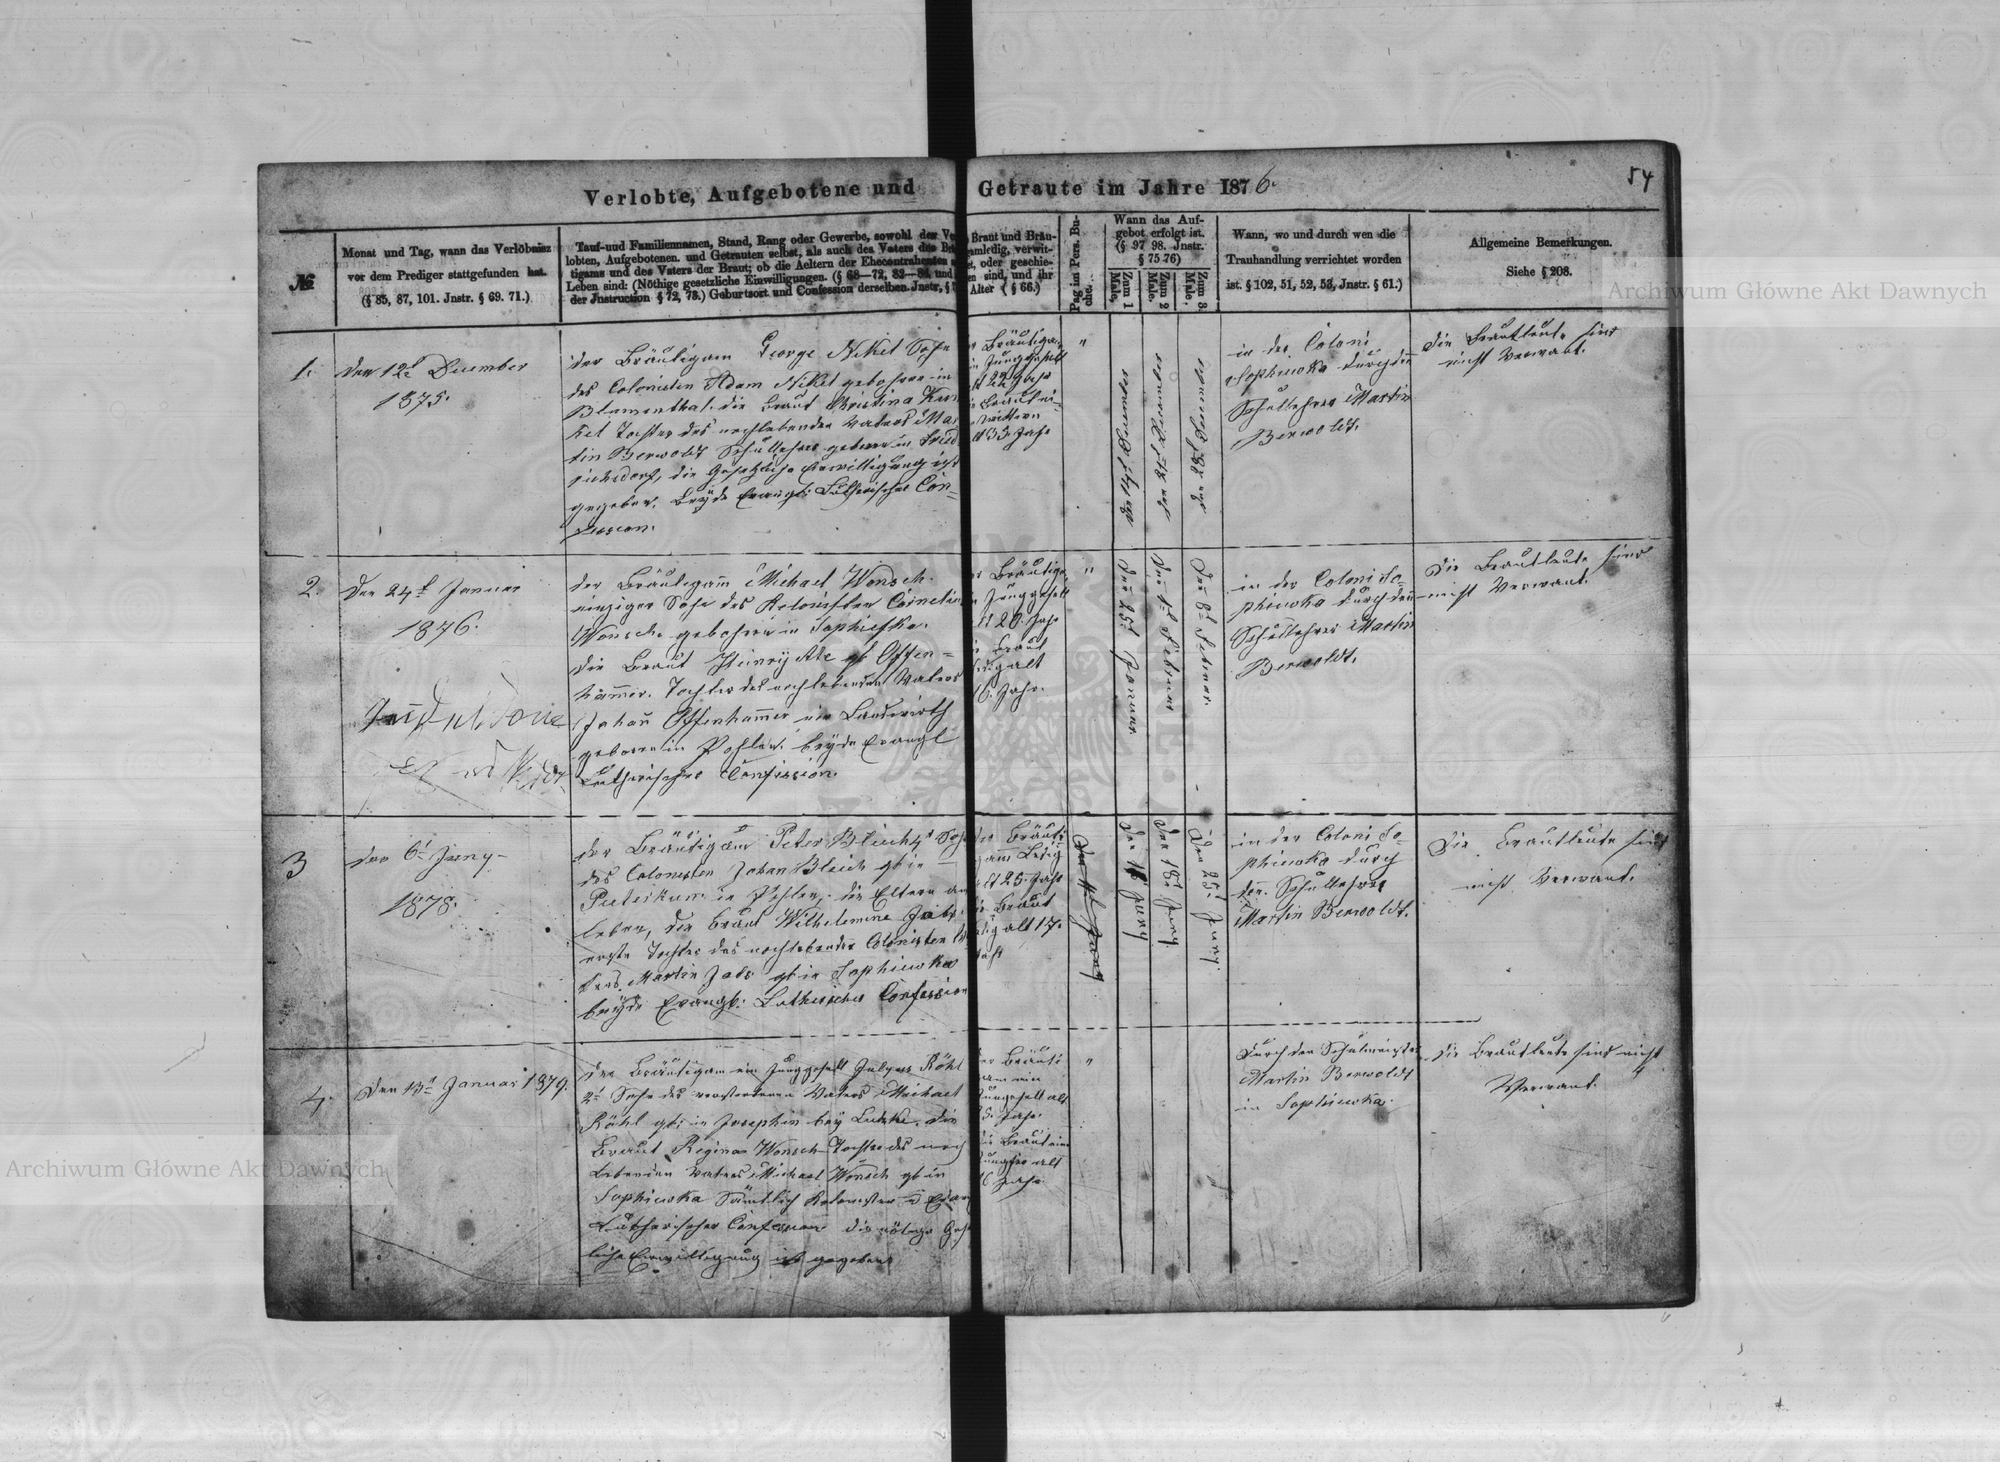 Verlobte, Aufgebotene und Getraute im Jahre 1876.
54
№
Monat und Tag, wann das Verlöbniss
vor dem Prediger stattgefunden hat.
(§ 85, 87, 101. Jnstr. § 69. 71.)
Tauf-und Familiennamen, Stand, Rang oder Gewerbe, sowohl der Ve
lobten, Aufgebotenen und Getrauten selbst, als auch des Vaters des Br
tigams und des Vaters der Braut; ob die Aeltern der Ehecontrahenten
Leben sind: (Nöthige gesetzliche Einwilligungen. (§ 68—72, 82—84, und
der Jnstruction § 72, 78.) Geburtsort und Confession derselben. Jnstr. §
Braut und Bräu-
amledig, verwit-
et, oder geschie-
en sind, und ihr
Alter (§ 66.)
Pag im Pers. Bu-
che.
Wann das Auf-
gebot erfolgt ist.
(§ 97 98. Jnstr.
§ 75 76)
Zum 1 Male.
Zum 2 Male.
Zum 3. Male.
Wann, wo und durch wen die
Trauhandlung verrichtet worden
ist. § 102, 51, 52, 53, Jnstr. § 61.)
Allgemeine Bemerkungen.
Siehe § 208.
1.
Den 12t December
1875.
der Bräutigam George Nikel Sohn
des Colonisten Adam Nikel gebohren in
Blumenthal. die Braut Christina
Tochter des nochlebenden Vaters Mar
tin Berwoldt Schullehrer geboren in Fried
richsdorf, die Gesetzliche Einwilligung ist
gegeben. Beyde Evangl: Lutherischer Con=
fession.
r Bräutiga
n Junggesell
lt 22 Jahr
Braut ei
Wittwe
lt 33 Jahr
"
in der Coloni
Sophiewka durch den
Schullehrer Martin
Berwoldt.
die Brautleute sind
nicht Verwant.
2.
Den 24t Januar
1876.
der Bräutigam Michael Wonsch.
einziger Sohn des Kolonisten Cornelius
Wonsch. gebohren in Sophiefka.
die Braut Henryette gb Offen=
hammer. Tochter des nochlebenden Vaters
Johañ Offenhammer ein Landwirth
geboren in Pohlen. beyde Evangl
Lutherischer Confession.
r Bräutiga
n Junggesell
lt 20. Jahr
Braut
ledig alt
16. Jahr.
"
Den 25t Januar
Den 1t Februar
Den 8t Februar.
in der Coloni So=
phiewka durch den
Schullehrer Martin
Berwoldt.
Die Brautleute sind
nicht Verwant.
3
den 6t Juny
1878.
der Bräutigam Peter Bleich, Sohn
des Colonisten Johan Bleich gb in
in Pohlen, die Eltern am
leben, die Braut Wilhelmine Jabs
erste Tochter des nochlebenden Colonisten
Martin Jabs gb in Sophiewka
beyde Evangl: Lutherischer Confession
der Bräuti
gam Ledig
alt 25. Jahr
die Braut
ledig alt 17.
Jahr
Den 11 Juny
Den 18t Juny
Den 25t Juny.
in der Coloni So=
phiewka durch
den Schullehrer
Martin Berwoldt.
Die Brautleute sind
nicht Verwant.
4.
Den 13t Januar 1879.
der Bräutigam ein Junggesell Julyus Röhl
2t Sohn des verstorbenen Vaters Michael
Röhl gb: in Josephin bey Lutzke. die
Braut Regina Wonsch Tochter des noch
lebenden Vaters Michael Wonsch gb in
Sophiewka Sämtlich Kolonisten u Evan
Lutherischer Confession die nötige Gesetz
liche Einwilligung ist gegeben
der Bräuti
gam ein
Junggesell alt
Jahr.
die Braut eine
Jungfer alt
Jahr.
"
durch den Schulmeister
Martin Berwoldt
in Sophiewka.
die Brautleute sind nicht
Verwant.
Archiwum Główne Akt Dawnych
Archiwum Główne Akt Dawnych